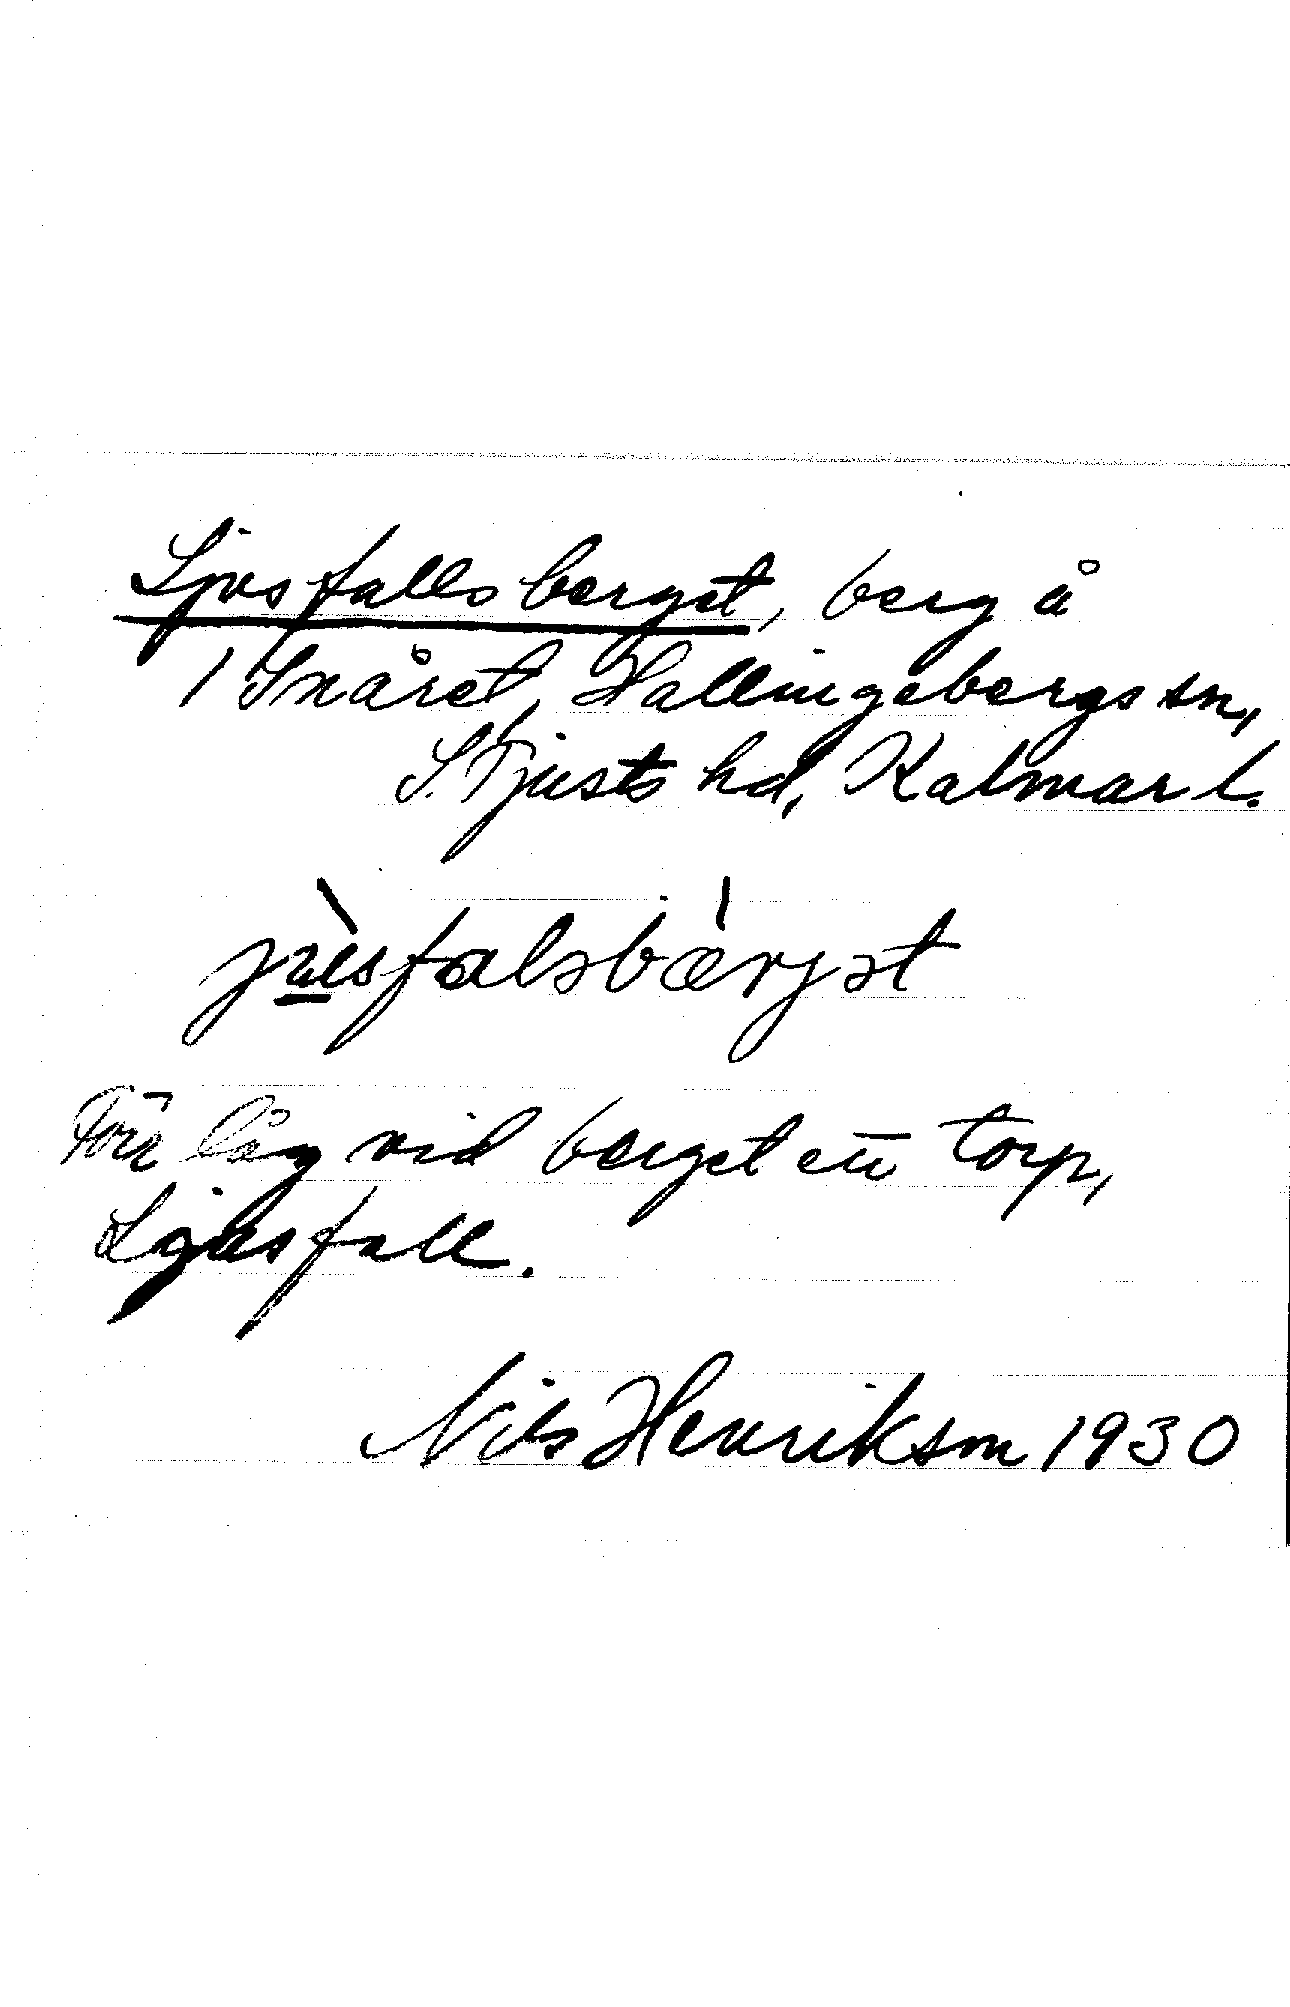 Ljusfallsberget, berg å
1 Snåret, Hallingebergs sn,
S. Tjusts hd, Kalmar l.
jùsfalsbǽrjət
Förr låg vid berget ett torp,
Ljusfall.
Nils Henrikson 1930